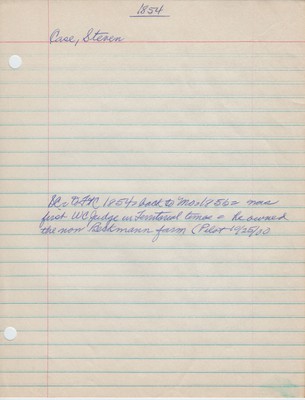 1854
Case, Steven
1854 - back to Mo - 1856 - was
first WC Judge in Territorial times - he owned
the now Beckmann farm (Pilot 10/25/00